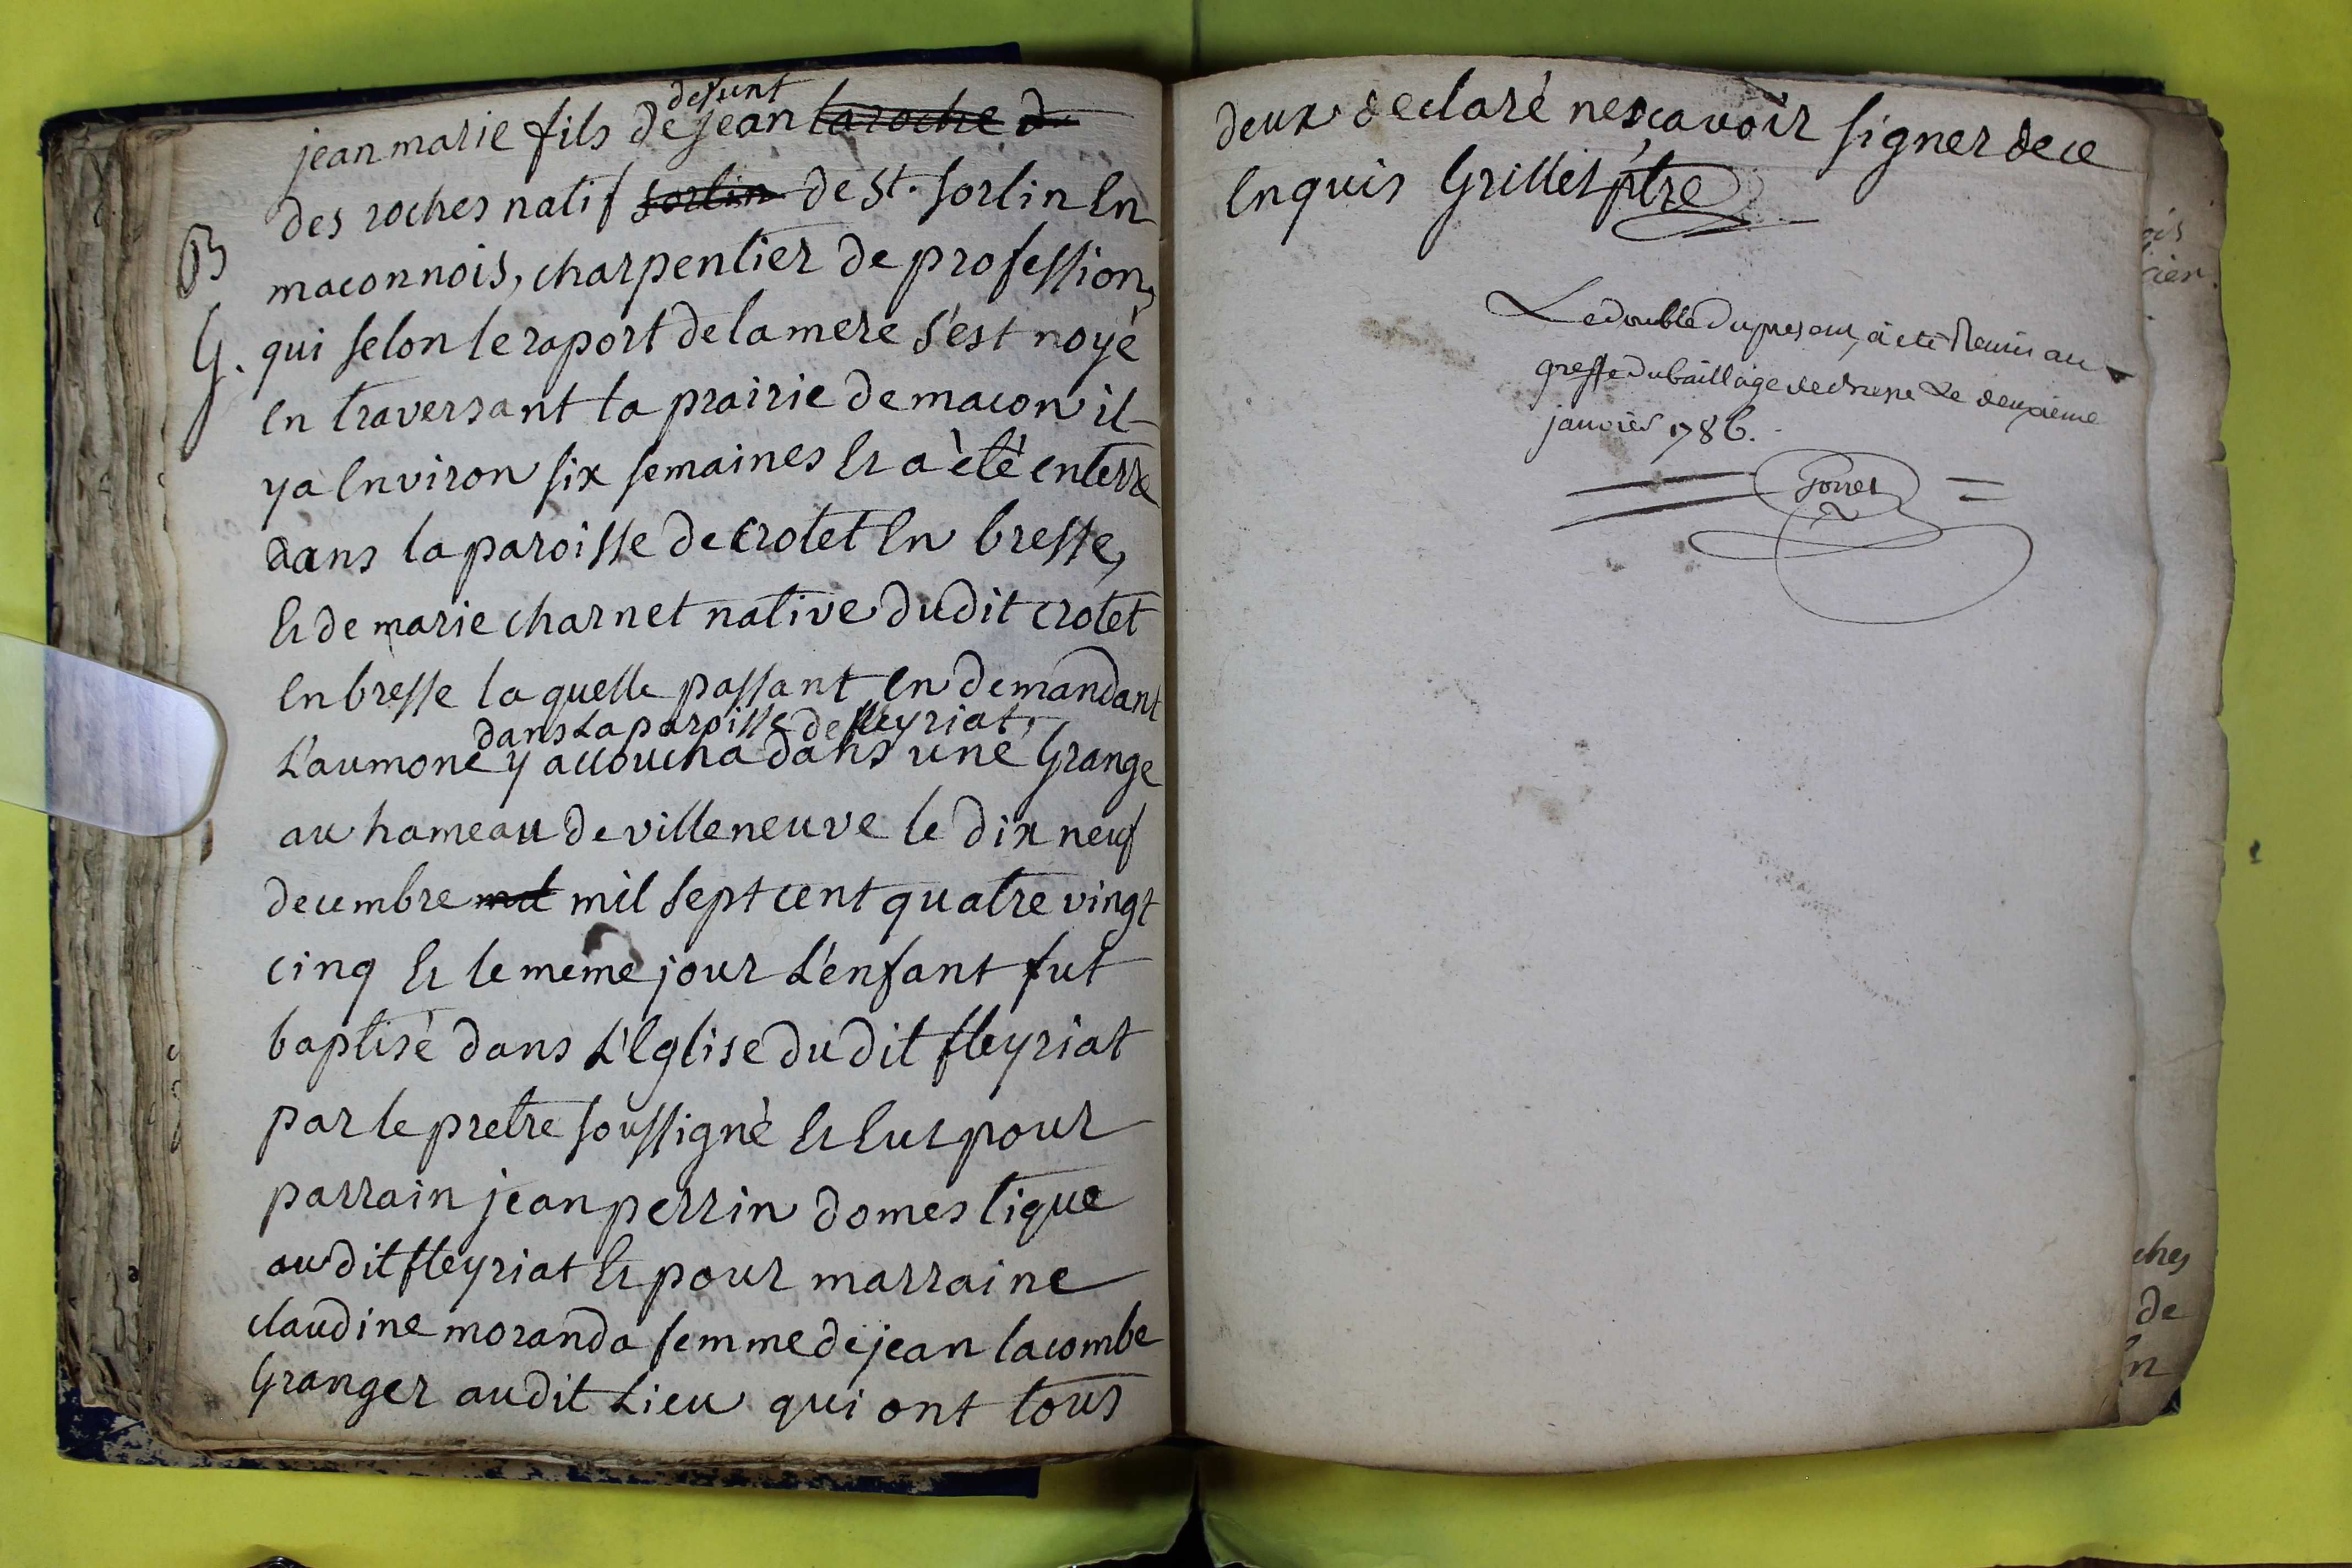 jean marie fils de defunt jean laroche d
des roches natif sorlin de St. sorlin En
B
maconnois, charpentier de profession,
G. qui selon le raport de la mere s'est noyé
En traversant la prairie de macon il
y a Environ six semaines Et a été enterré
dans la paroisse de crotet En bresse,
Et de marie charnet native dudit crotet
En bresse la quelle passant en demandant
dans la paroisse de fleyriat
L'aumone y accoucha dans une Grange
au hameau de villeneuve le dix neuf
decembre mil sept cent quatre vingt
cinq Et le meme jour L'enfant fut
baptisé dans L'Eglise du dit fleyriat
par le pretre soussigné Et Eut pour
parrain jean perrin domestique
au dit fleyriat Et pour marraine
claudine moranda femme de jean lacombe
Granger audit Lieu qui ont tous
deux declaré ne scavoir signer de ce
Enquis Grillet ptre
Le double du present à eté Remis au
greffe du bailliage de Bresse Le deuxieme
janvier 1786.
ches
de
En